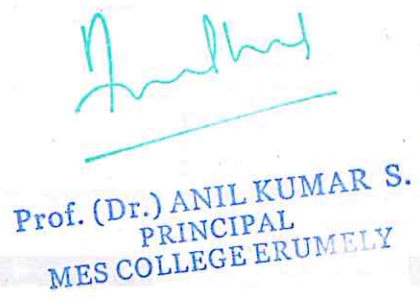 Prof. (Dr.) ANIL KUMAR S.
PRINCIPAL
MES COLLEGE ERUMELY